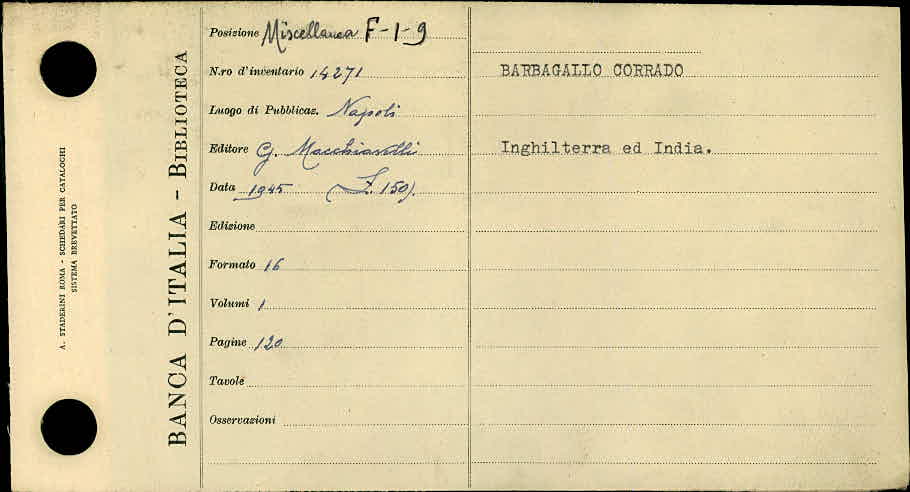 A. STADERINI ROMA - SCHEDARI PER CATALOGHI
SISTEMA BREVETTATO
BANCA D'ITALIA - BIBLIOTECA
Posizione Miscellanea F-1-9
N.ro d'inventario 14271
Luogo di Pubblicaz. Napoli
Editore G. Macchiavelli
Data 1945 (L. 150).
Edizione
Formato 16
Volumi 1
Pagine 120
Tavole
Osservazioni
BARBAGALLO CORRADO
Inghilterra ed India.